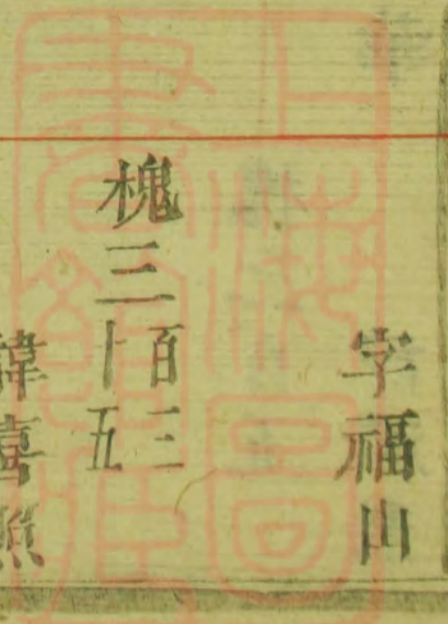 字福山
槐三百三十五
諱喜照